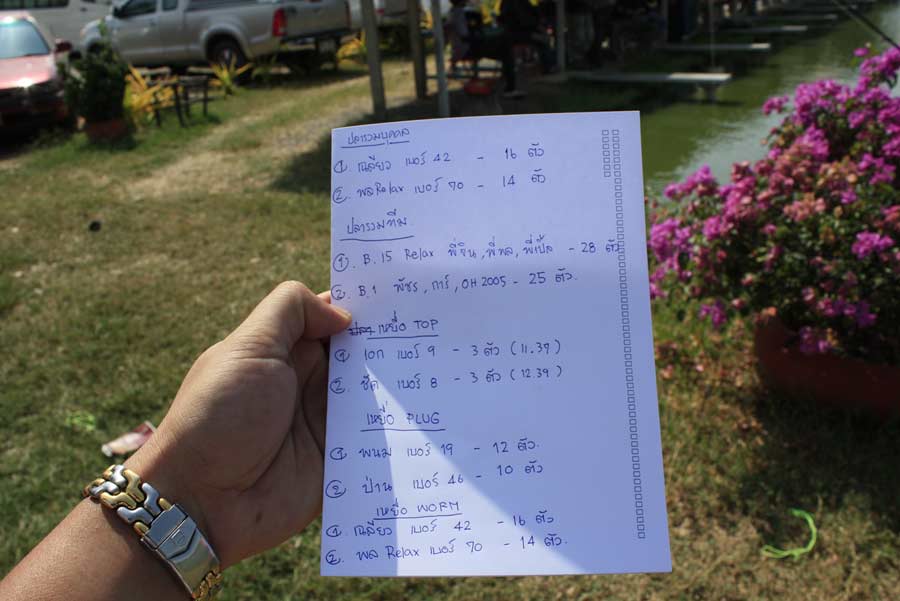 ปลารวมบุคคล
① เฉลียว เบอร์ 42 - 16 ตัว
② พล Relax เบอร์ 70 - 14 ตัว
ปลารวมทีม
① B.15 Relax พี่จิน, พี่พล, พี่เปิ้ล - 28 ตัว
② B.1 พัชร, การ์, OH 2005 - 25 ตัว.
เหยื่อ TOP
① เอก เบอร์ 9 - 3 ตัว (11.37)
② ชัด เบอร์ 8 - 3 ตัว (12.39)
เหยื่อ PLUG
① พนม เบอร์ 19 - 12 ตัว.
② ป่าน เบอร์ 46 - 10 ตัว
เหยื่อ WORM
① เฉลียว เบอร์ 42 - 16 ตัว
② พล Relax เบอร์ 70 - 14 ตัว.